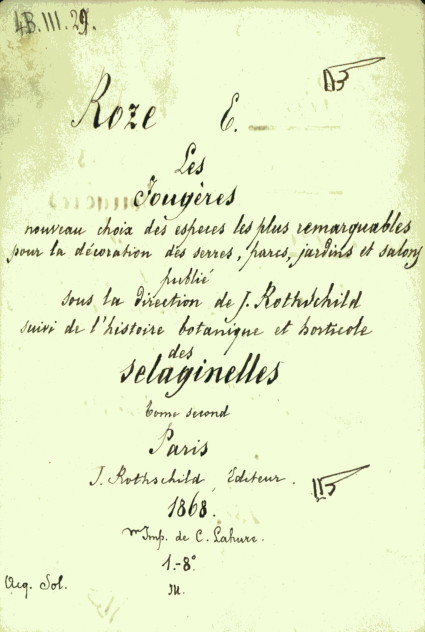 4B.III.29.
Roze E.
Les
Fougères
nouveau choix des especes les plus remarquables
pour la décoration des serres, parcs, jardins et salons
publié
sous la direction de J. Rothschild
suivi de l'histoire botanique et horticole
des
selaginelles
tome second
Paris
J. Rothschild, Editeur.
1868.
Imp. de C. Lahure.
1.-8º
M.
Acq. Sol.